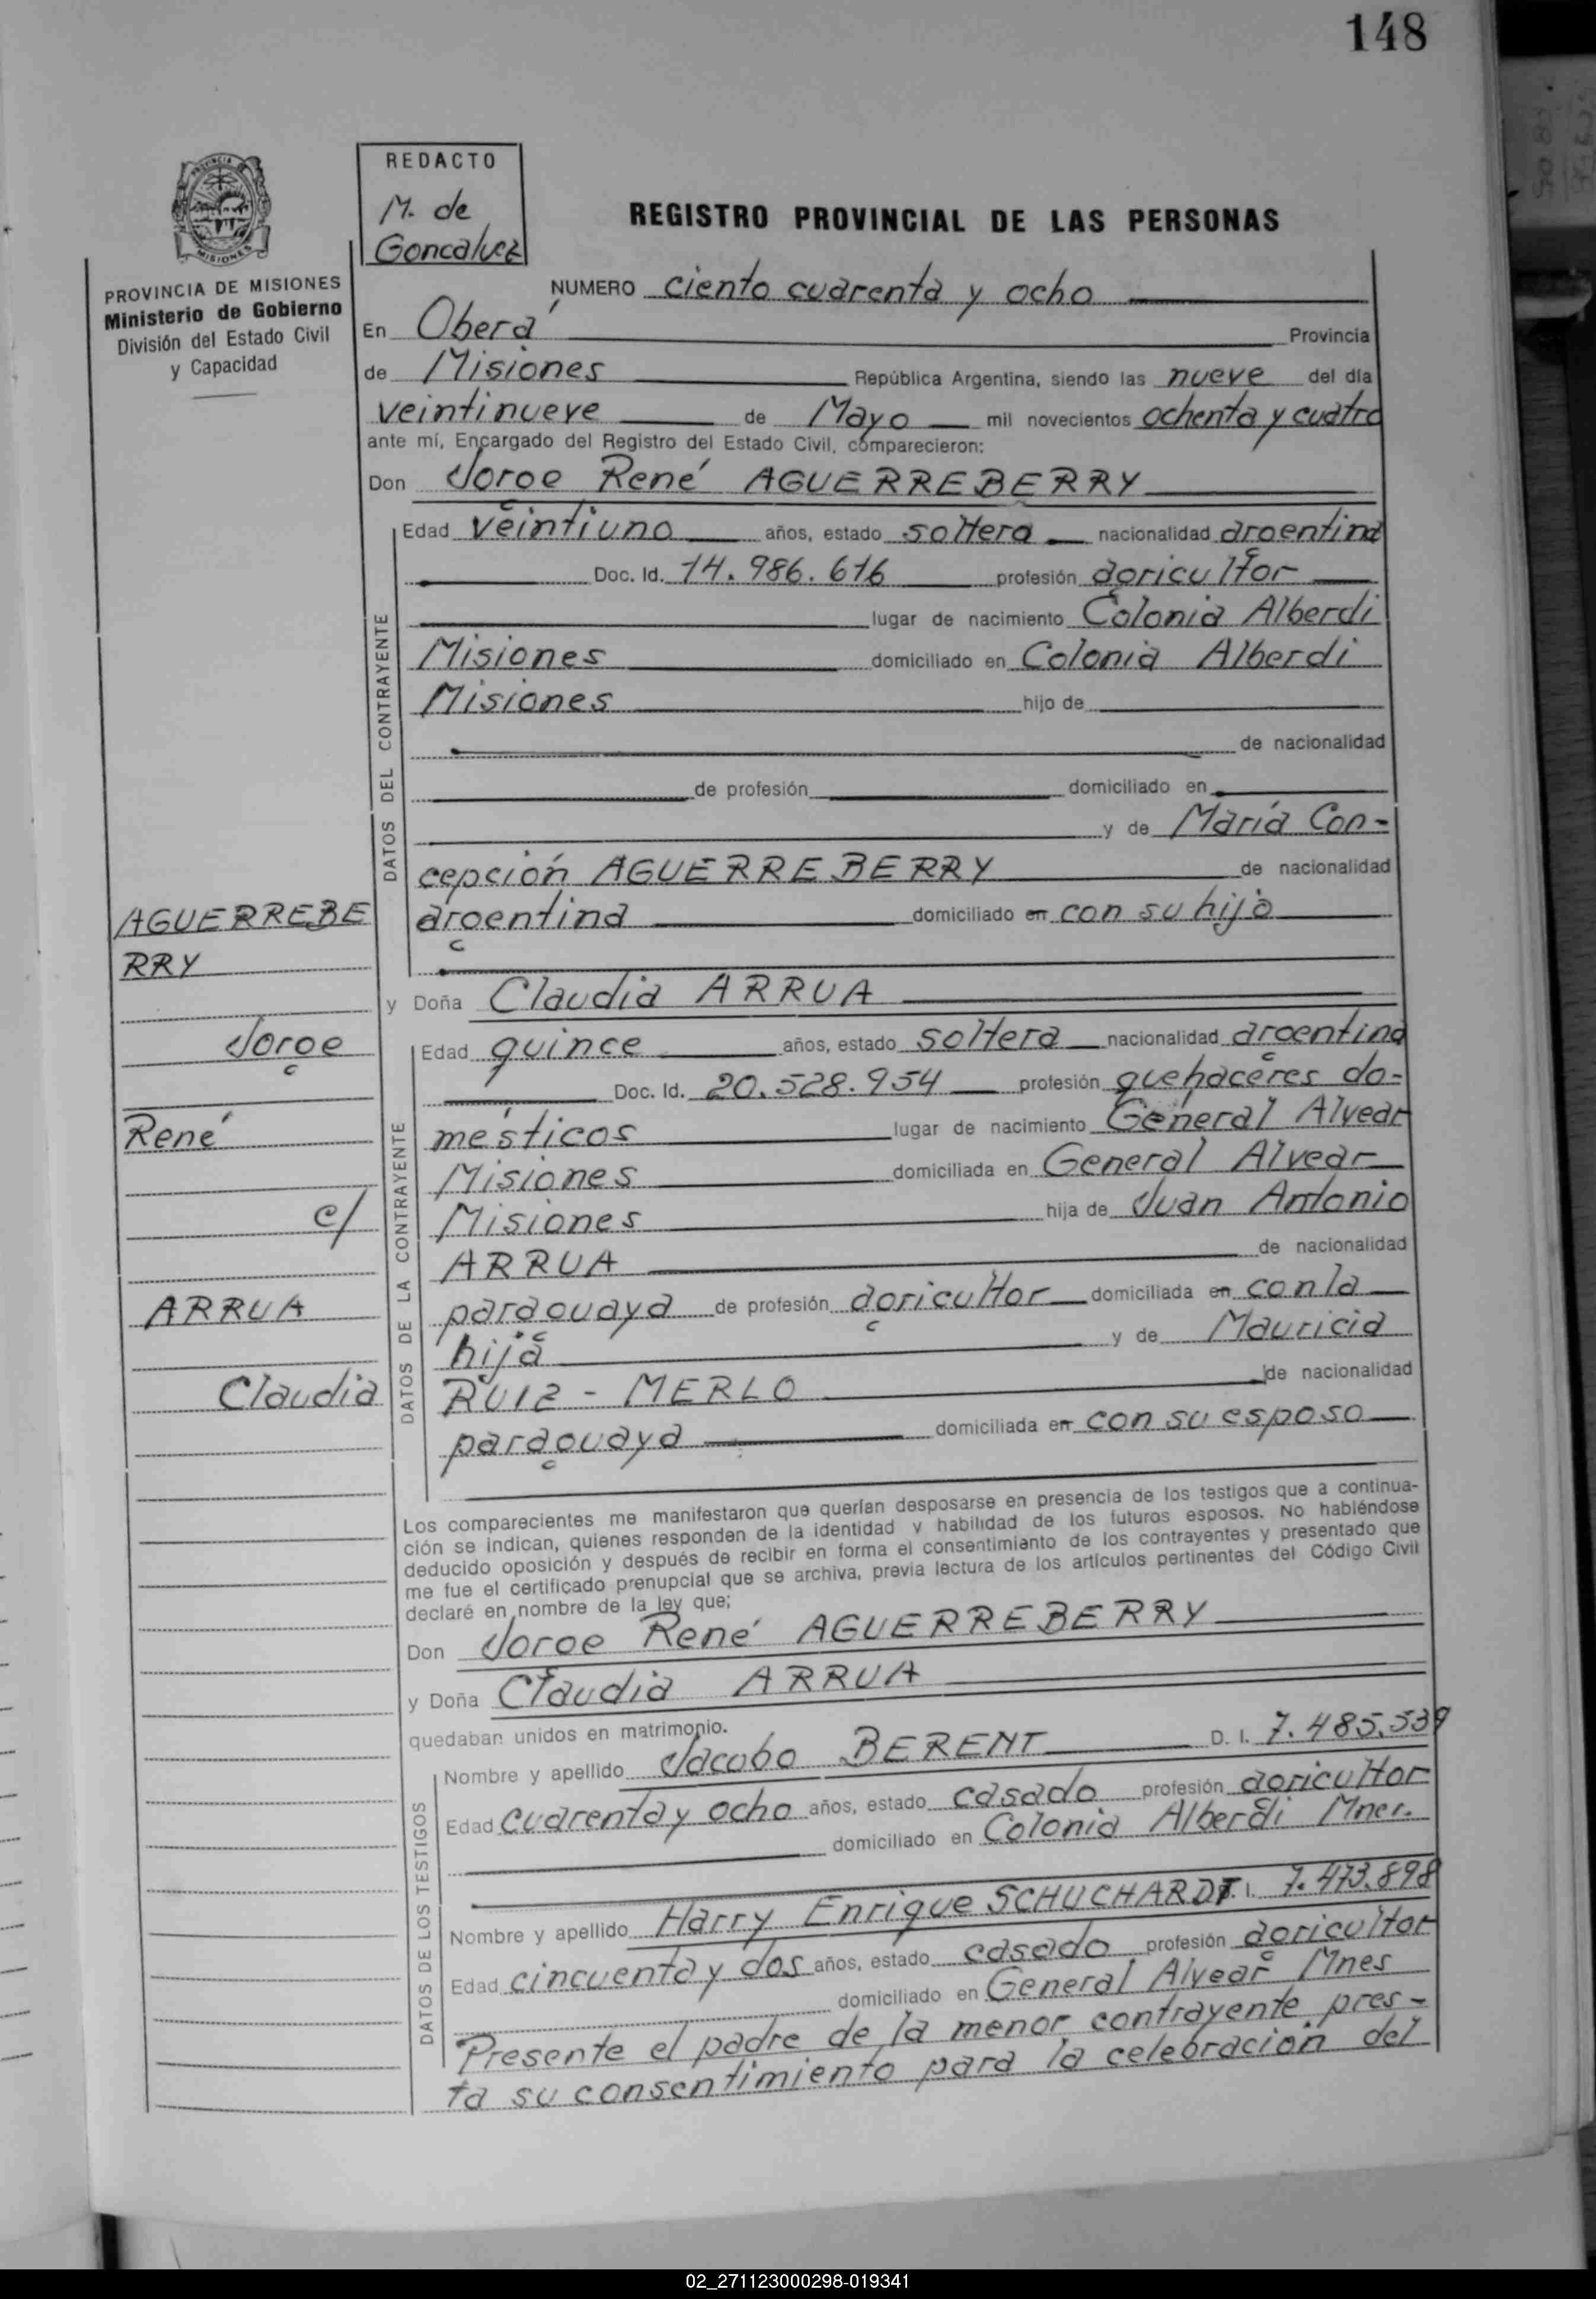 148
REDACTO
M. de
Goncalvez
REGISTRO PROVINCIAL DE LAS PERSONAS
PROVINCIA DE MISIONES
Ministerio de Gobierno
División del Estado Civil
y Capacidad
NUMERO ciento cuarenta y ocho
En Oberá Provincia
de Misiones República Argentina, siendo las nueve del día
veintinueve de Mayo mil novecientos ochenta y cuatro
ante mí, Encargado del Registro del Estado Civil, comparecieron:
Don Jorge René AGUERREBERRY
DATOS DEL CONTRAYENTE
Edad veintiuno años, estado soltero nacionalidad argentina
Doc. Id. 14.986.616 profesión agricultor
lugar de nacimiento Colonia Alberdi
Misiones domiciliado en Colonia Alberdi
Misiones hijo de
de nacionalidad
de profesión domiciliado en
y de María Con-
cepción AGUERREBERRY de nacionalidad
argentina domiciliado en con su hijo
y Doña Claudia ARRUA
DATOS DE LA CONTRAYENTE
Edad quince años, estado soltera nacionalidad argentina
Doc. Id. 20.528.954 profesión quehaceres do-
mésticos lugar de nacimiento General Alvear
Misiones domiciliada en General Alvear
Misiones hija de Juan Antonio
ARRUA de nacionalidad
paraguaya de profesión agricultor domiciliada en con la
hija y de Mauricia
RUIZ - MERLO de nacionalidad
paraguaya domiciliada en con su esposo
AGUERREBE
RRY
Jorge
René
c/
ARRUA
Claudia
Los comparecientes me manifestaron que querían desposarse en presencia de los testigos que a continua-
ción se indican, quienes responden de la identidad y habilidad de los futuros esposos. No habiéndose
deducido oposición y después de recibir en forma el consentimiento de los contrayentes y presentado que
me fue el certificado prenupcial que se archiva, previa lectura de los artículos pertinentes del Código Civil
declaré en nombre de la ley que:
Don Jorge René AGUERREBERRY
y Doña Claudia ARRUA
quedaban unidos en matrimonio.
DATOS DE LOS TESTIGOS
Nombre y apellido Jacobo BERENT D. I. 7.485.539
Edad cuarenta y ocho años, estado casado profesión agricultor
domiciliado en Colonia Alberdi Mnes.
Nombre y apellido Harry Enrique SCHUCHARDT D. I. 7.473.898
Edad cincuenta y dos años, estado casado profesión agricultor
domiciliado en General Alvear Mnes
Presente el padre de la menor contrayente pres-
ta su consentimiento para la celebración del
02_271123000298-019341